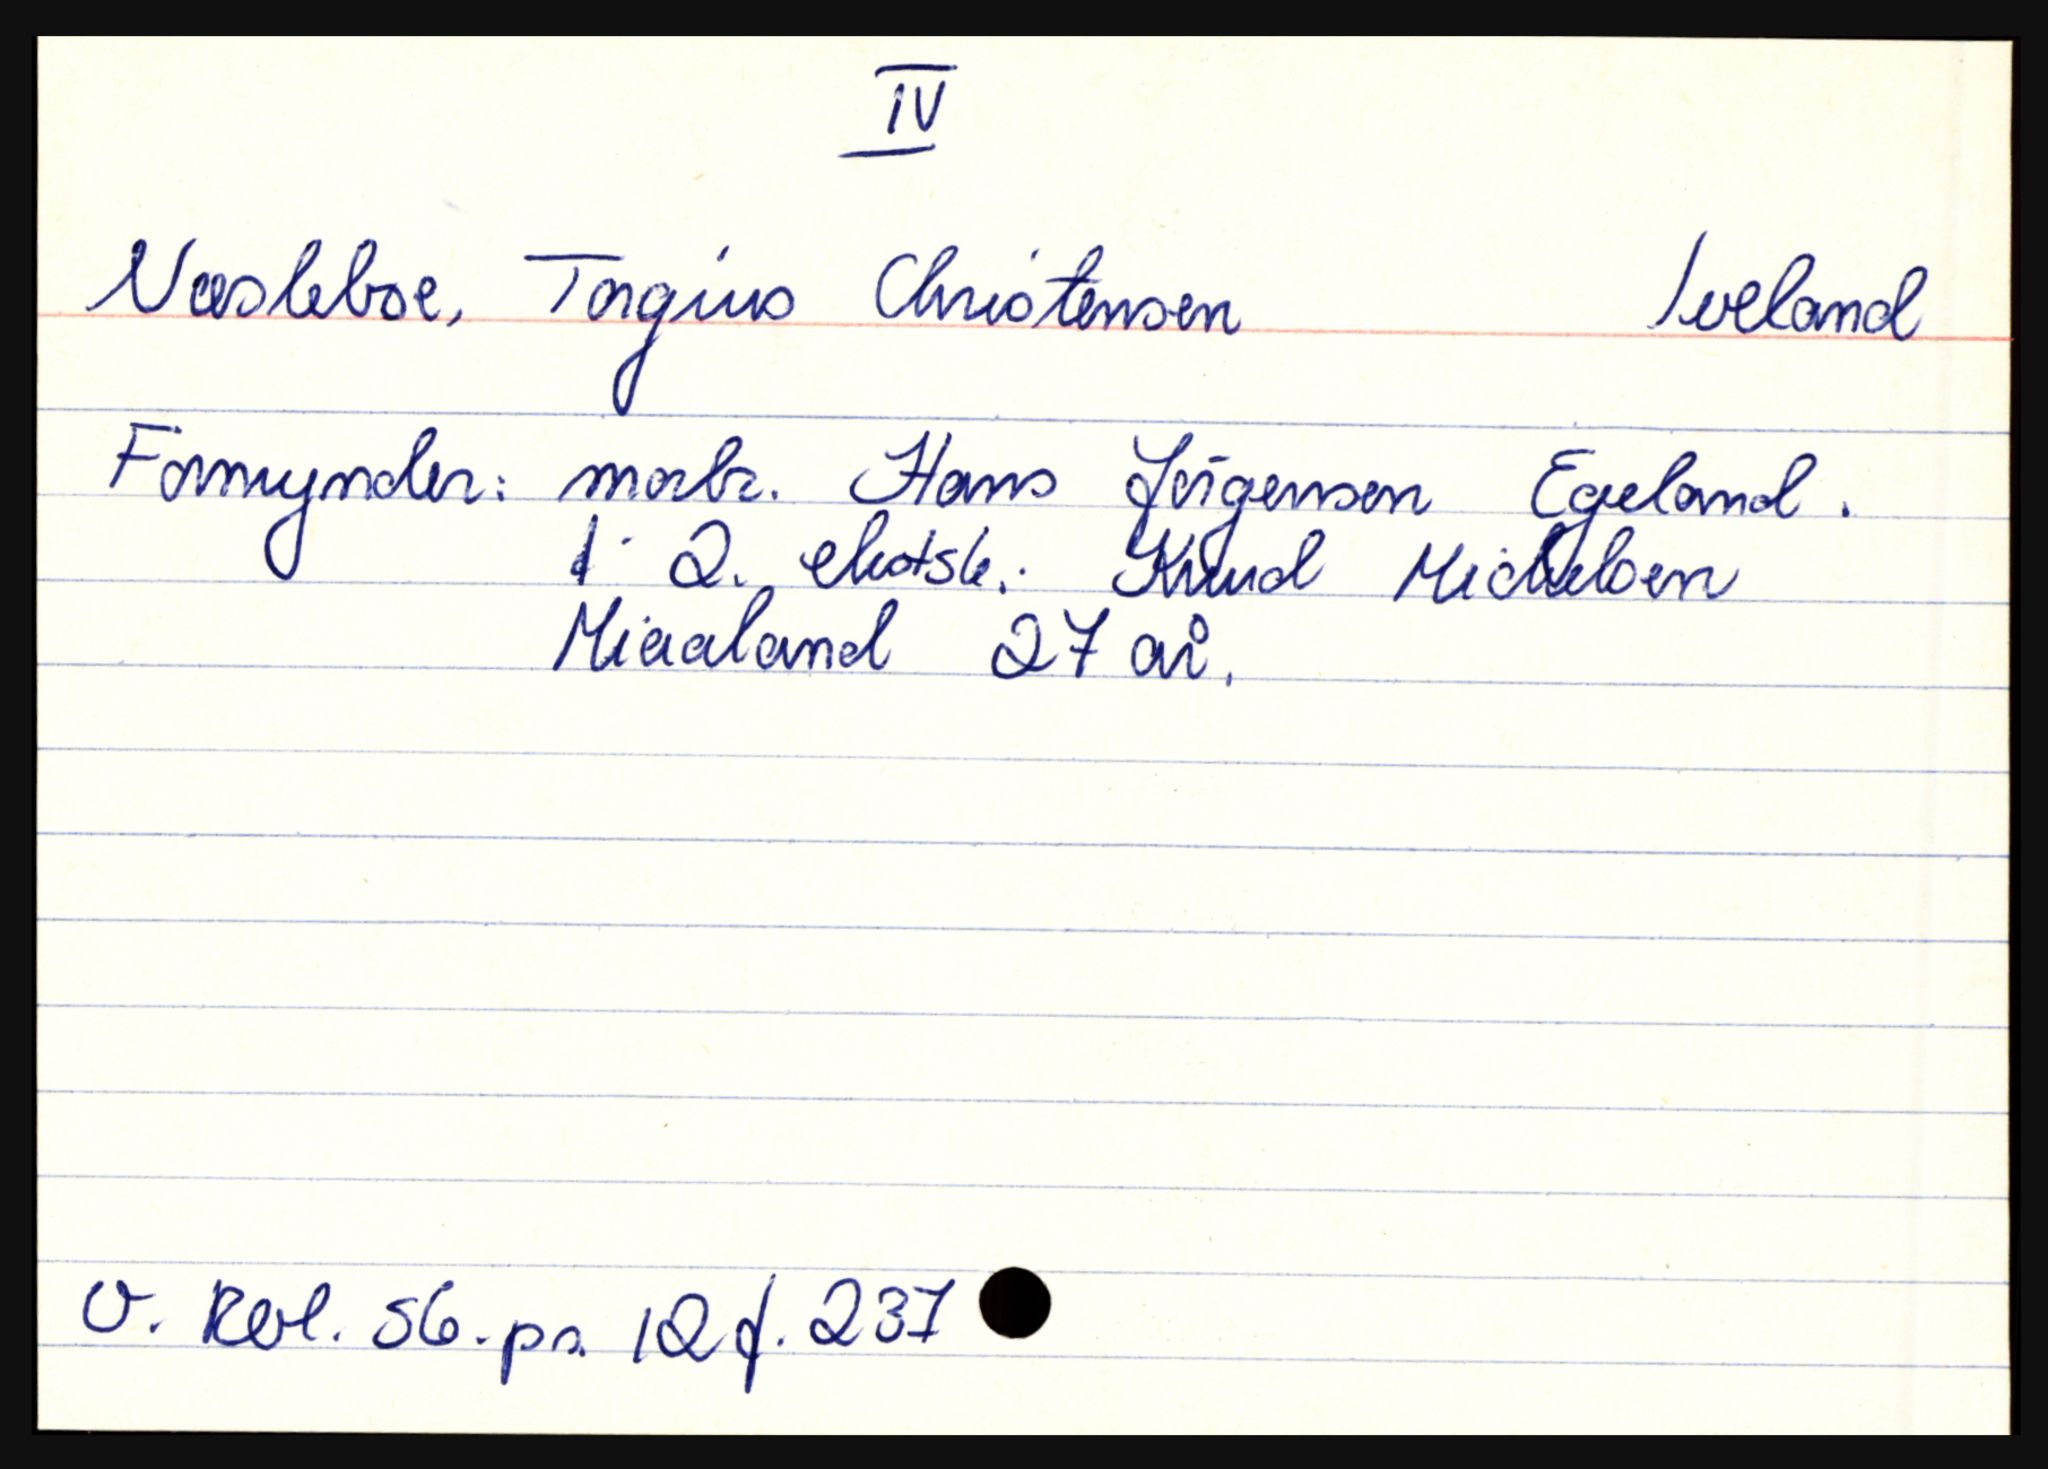 IV
Næsleboe, Torgius Christensen Iveland
Formynder: morbr. Hans Jörgensen Egeland.
I 2. ekotsk.: Knud Michelsen
Miaaland 27 år.
V. Rbl. S6. pr. 12 f. 237